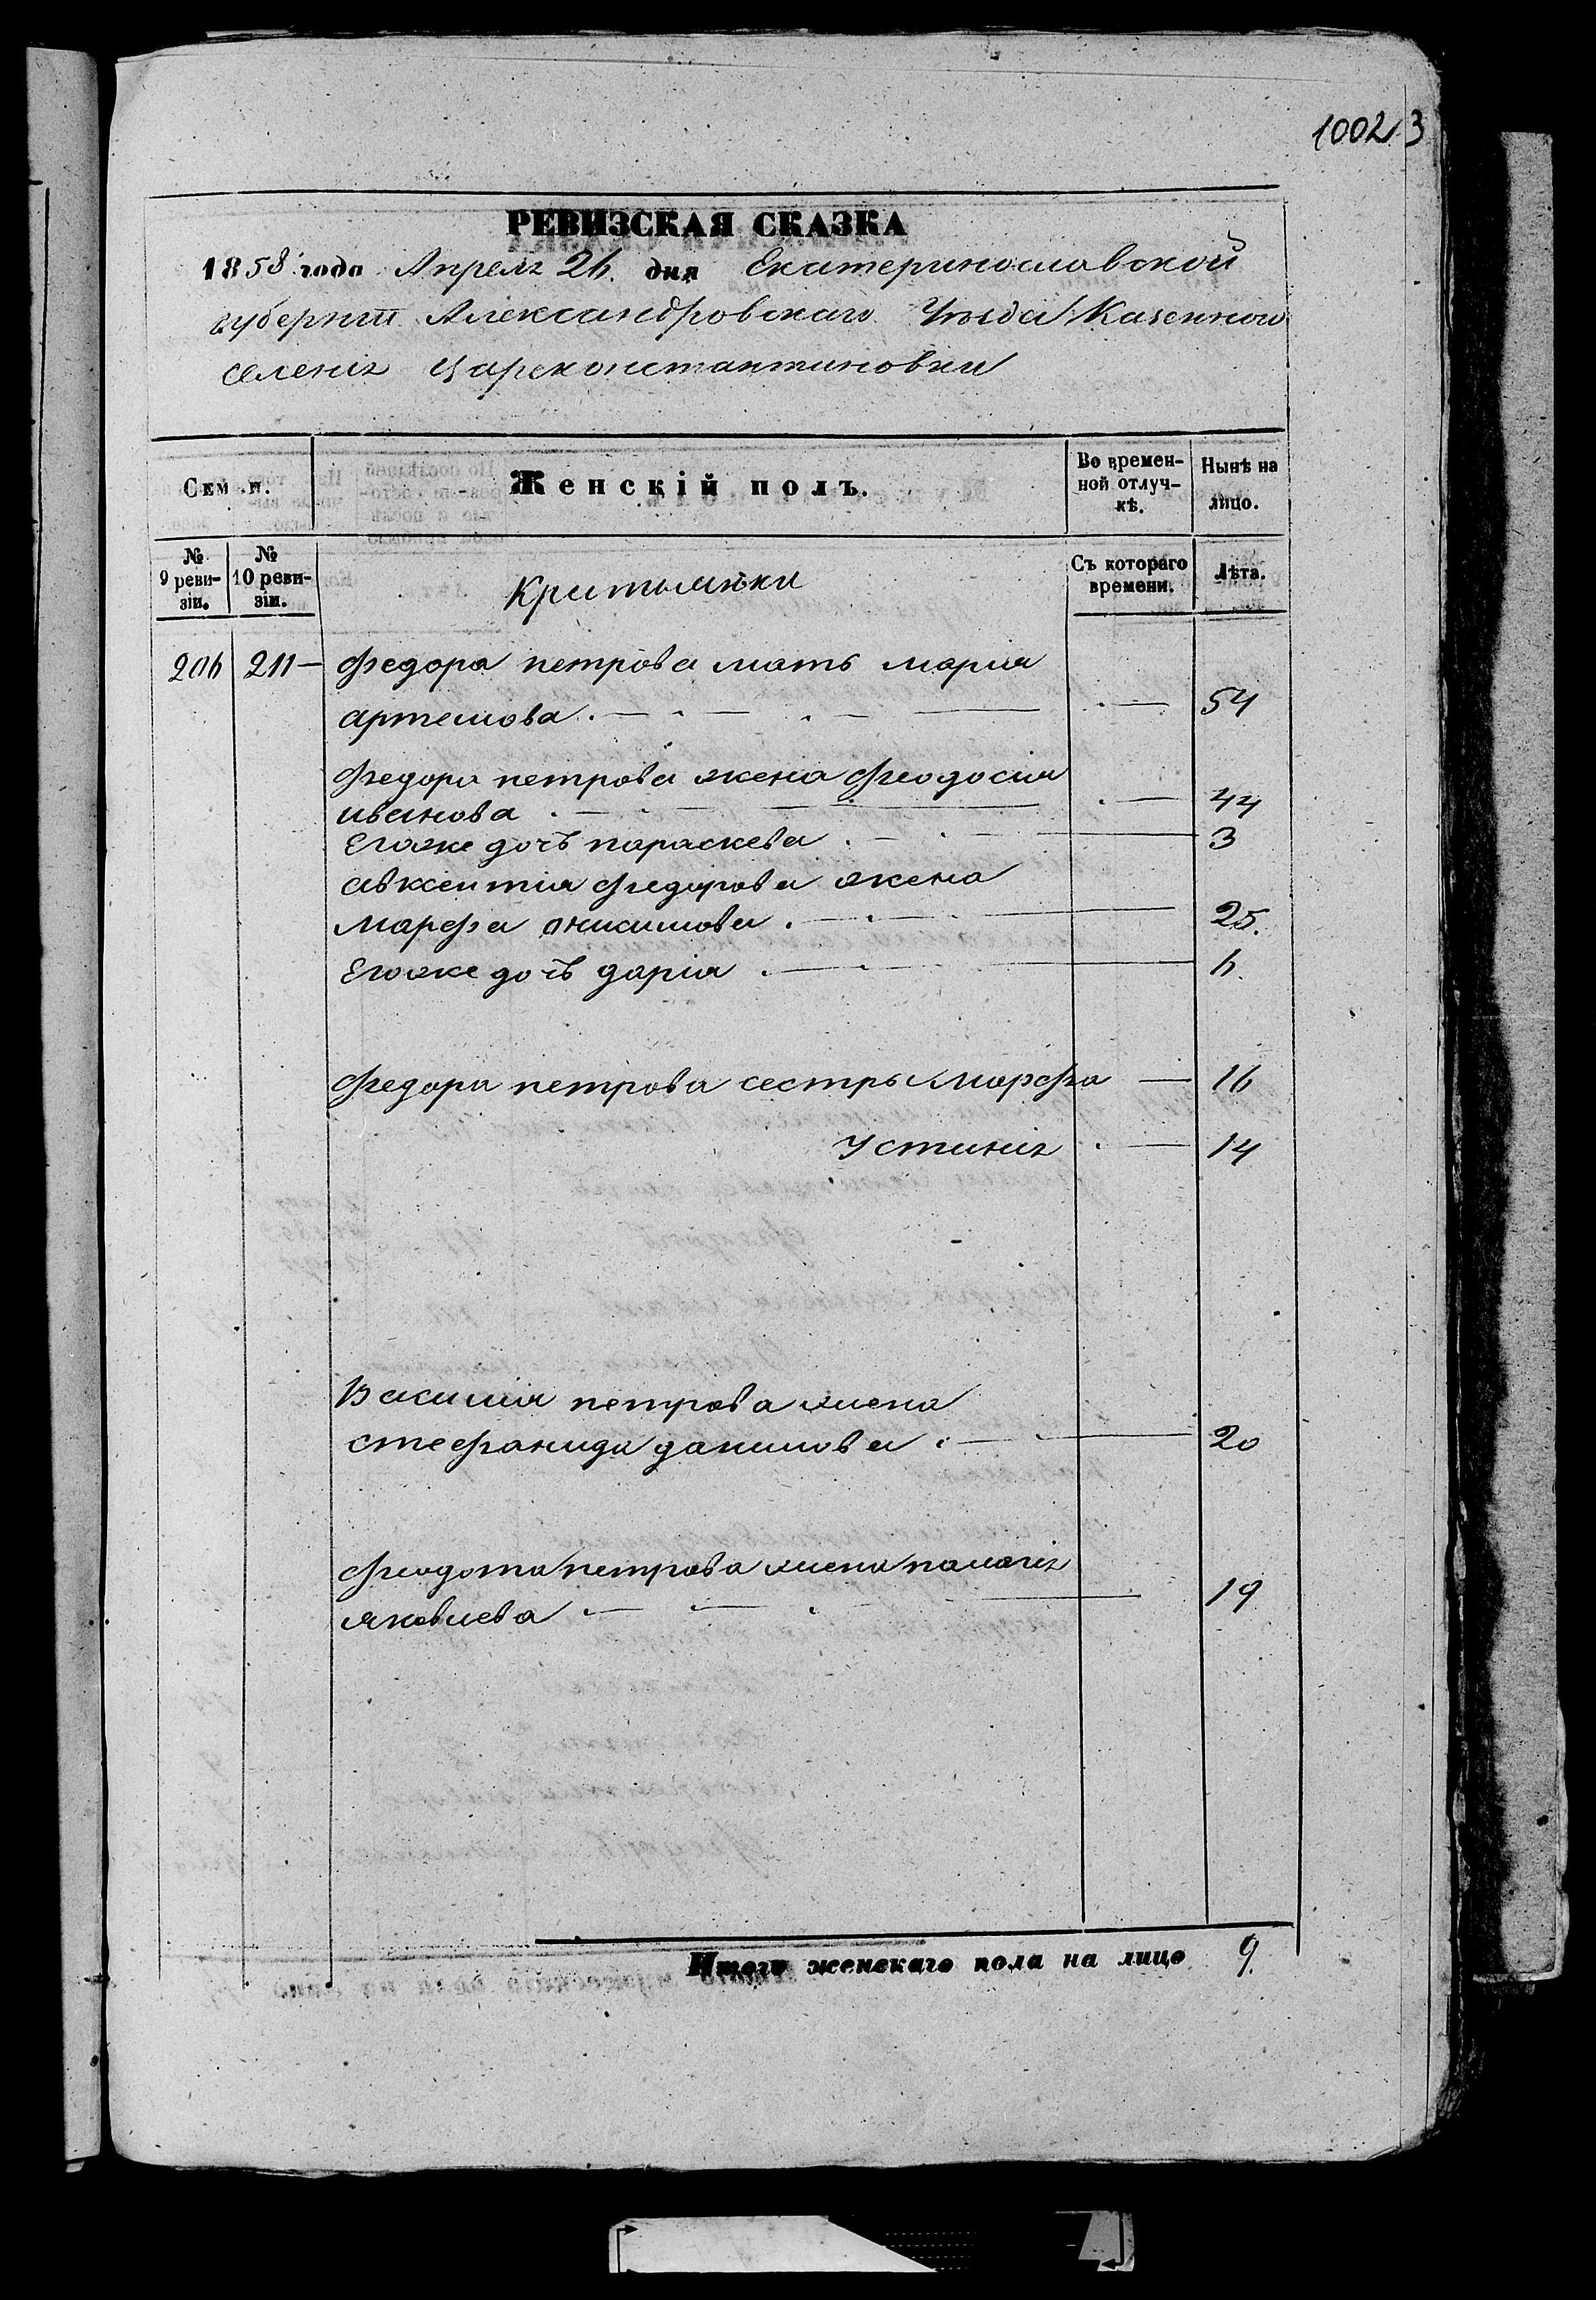 1002 3
РЕВИЗСКАЯ СКАЗКА
1858 года Апреля 26 дня Екатеринославской
губерніи Александровскаго Уѣзда Казенного
селенія Цареконстантиновки
Сем и.
Женскій полъ.
Во времен-
ной отлуч-
кѣ.
Нынѣ на
лицо.
№
9 реви-
зіи.
№
10 реви-
зіи.
Съ котораго
времени.
Лѣта.
206 211 — Федора петрова мать марія
артемова . — . — . — 54
Федора петрова жена феодосія
иванова . — . — 44
Егоже дочь параскева . — 3
авксентія федорова жена
марфа анисимова . — 25.
Егоже дочь дарія . — 6.
Федора петрова сестры марфа — 16
Устинія . — 14
Василія петрова жена
стефанида данилова . — 20
Феодота петрова жена палагія
яковлева — . — 19
Итого женскаго пола на лицо 9.